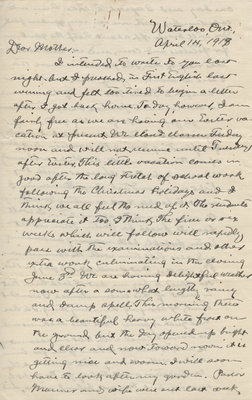 Waterloo, Ont.
April 14, 1918
Dear Mother,
I intended to write to you last
night but I preached, in First English last
evening and felt too tired to begin a letter
after I got back home. Today however I am
fairly free as we are having our Easter va-
cation at present. We closed classes Tuesday
noon and will not resume until Tuesday
after Easter. This little vacation comes in
good after the long stretch of school work
following the Christmas holidays and I
think we all feel the need of it. The students
appreciate it too. I think the five or six
weeks which will follow will rapidly
pass with the examinations and other
extra work culminating in the closing
June 3rd. We are having delightful weather
now after a somewhat lengthy rainy
and damp spell. This morning there
was a beautiful heavy white frost on
the ground but the day opened up bright
and clear and now toward noon it is
getting nice and warm. I will soon
have to look after my garden. Pastor
and wife were out last week.